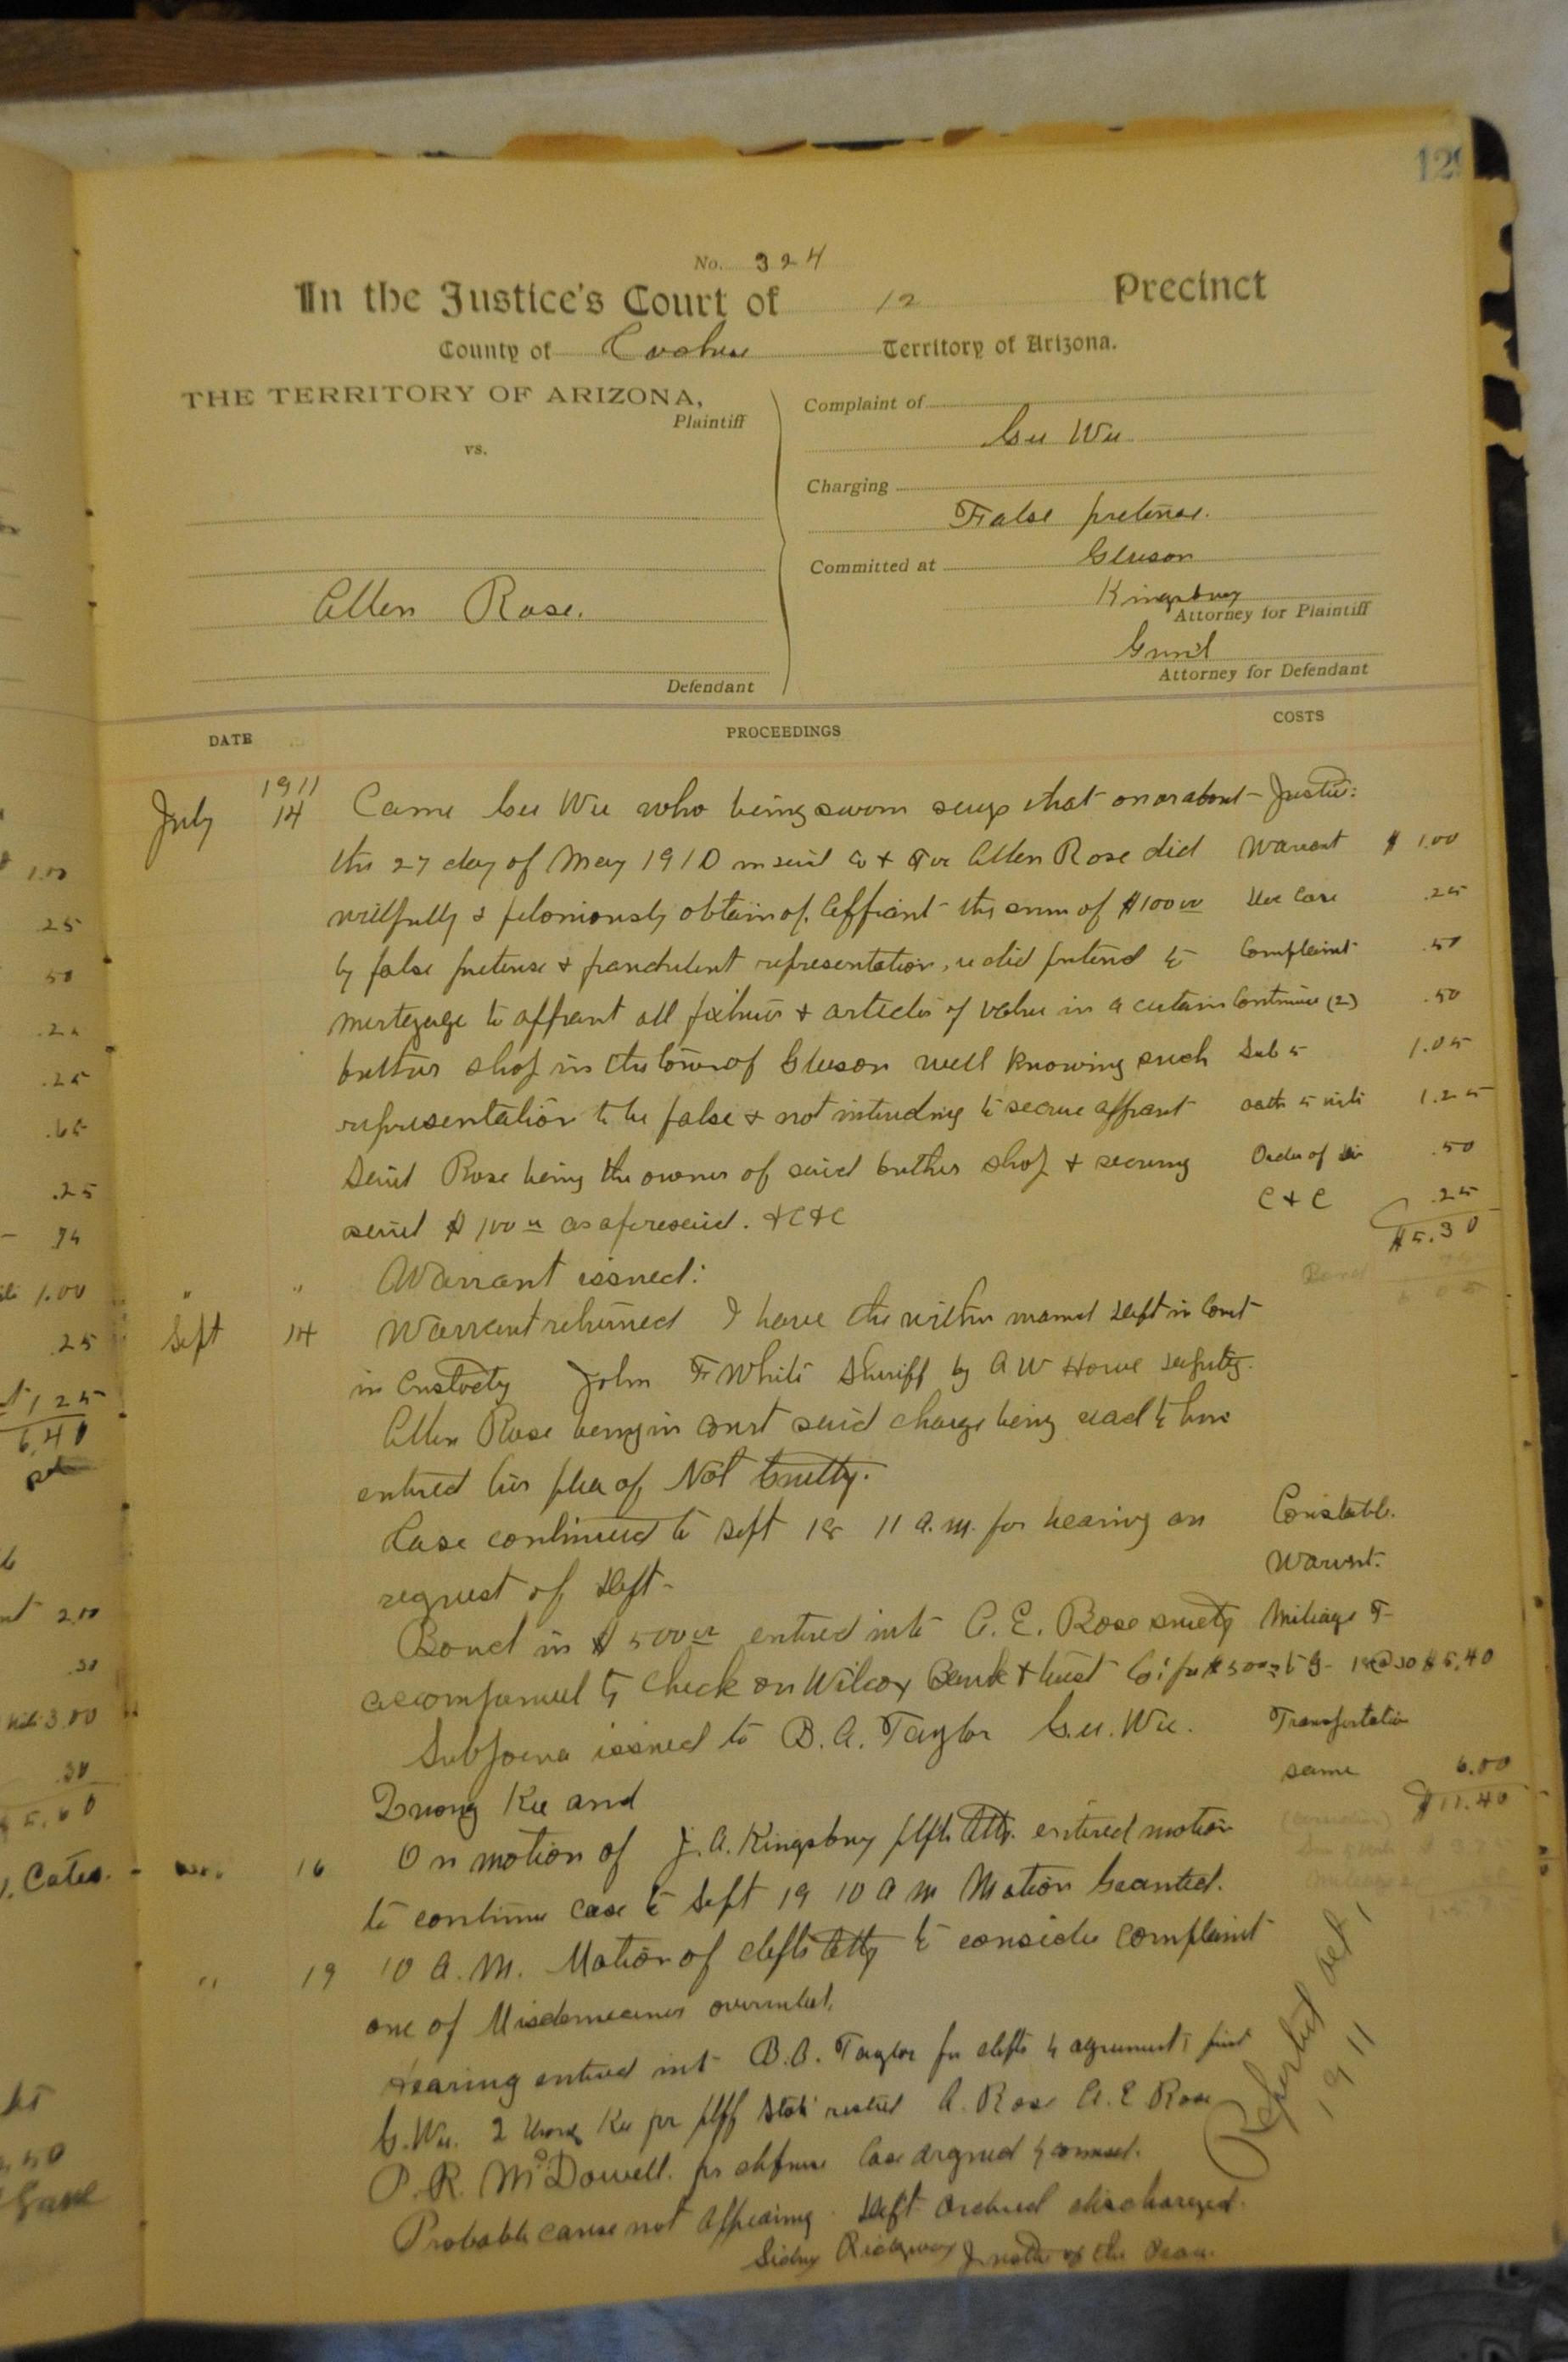 129
No. 324
In the Justice's Court of 12 Precinct
County of Cochise Territory of Arizona.
THE TERRITORY OF ARIZONA,
Plaintiff
vs.
Allen Rose.
Defendant
Complaint of
Gee Wee
Charging
False pretense.
Committed at Gleeson
Kingsbury
Attorney for Plaintiff
Attorney for Defendant
DATE PROCEEDINGS COSTS
1911
July 14 Came Gee Wee who being sworn says that on or about Justice:
the 27 day of May 1910 in said Co & Ter Allen Rose did Warrant $ 1.00
willfully & feloniously obtain of Affiant the sum of $100 00 .25
by false pretense & fraudulent representation, ie did pretend to Complaint .50
mortgage to affiant all fixtures & articles of value in a certain Continue (2) .50
butcher shop in the town of Gleeson well knowing such Sub 5 1.05
representation to be false & not intending to secure affiant oath 5 wits 1.25
Said Rose being the owner of said butcher shop & securing Order of Dis .50
said $100 00 as aforesaid. &C&C C & C .25
$5.30
Warrant issued: Bond
Sept 14 Warrant returned I have the within named deft in Court
in Custody John F White Sheriff by A W Howe deputy.
Allen Rose being in court said charge being read to him
entered his plea of Not Guilty.
Case continued to Sept 18 11 a.m. for hearing on Constable.
request of deft- Warrnt.
Bond in $500 00 entered into A. E. Rose surety Mileage T-
accompanied by Check on Wilcox Bank & trust Co. for $500 to G- 18@30 $5.40
Subpoena issued to B. A. Taylor G.u. Wee. Transportation
Quong Kee and same 6.00
$11.40
16 On motion of J. A. Kingsbury plfs Atty. entered motion
to continue case to Sept 19 10 a m Motion Granted.
" 19 10 A. M. Motion of defts Atty to consider complaint
one of Misdemeanor overruled.
Hearing entered into B. A. Taylor for defts by agreement first
G. Wee. Quong Kee for plff State rested A. Rose A. E Rose
P. R. McDowell. for defense Case argued by counsel.
Probable cause not appearing. Deft ordered discharged.
Sidney Ridgway Justice of the Peace.
Reported Oct 1
1911